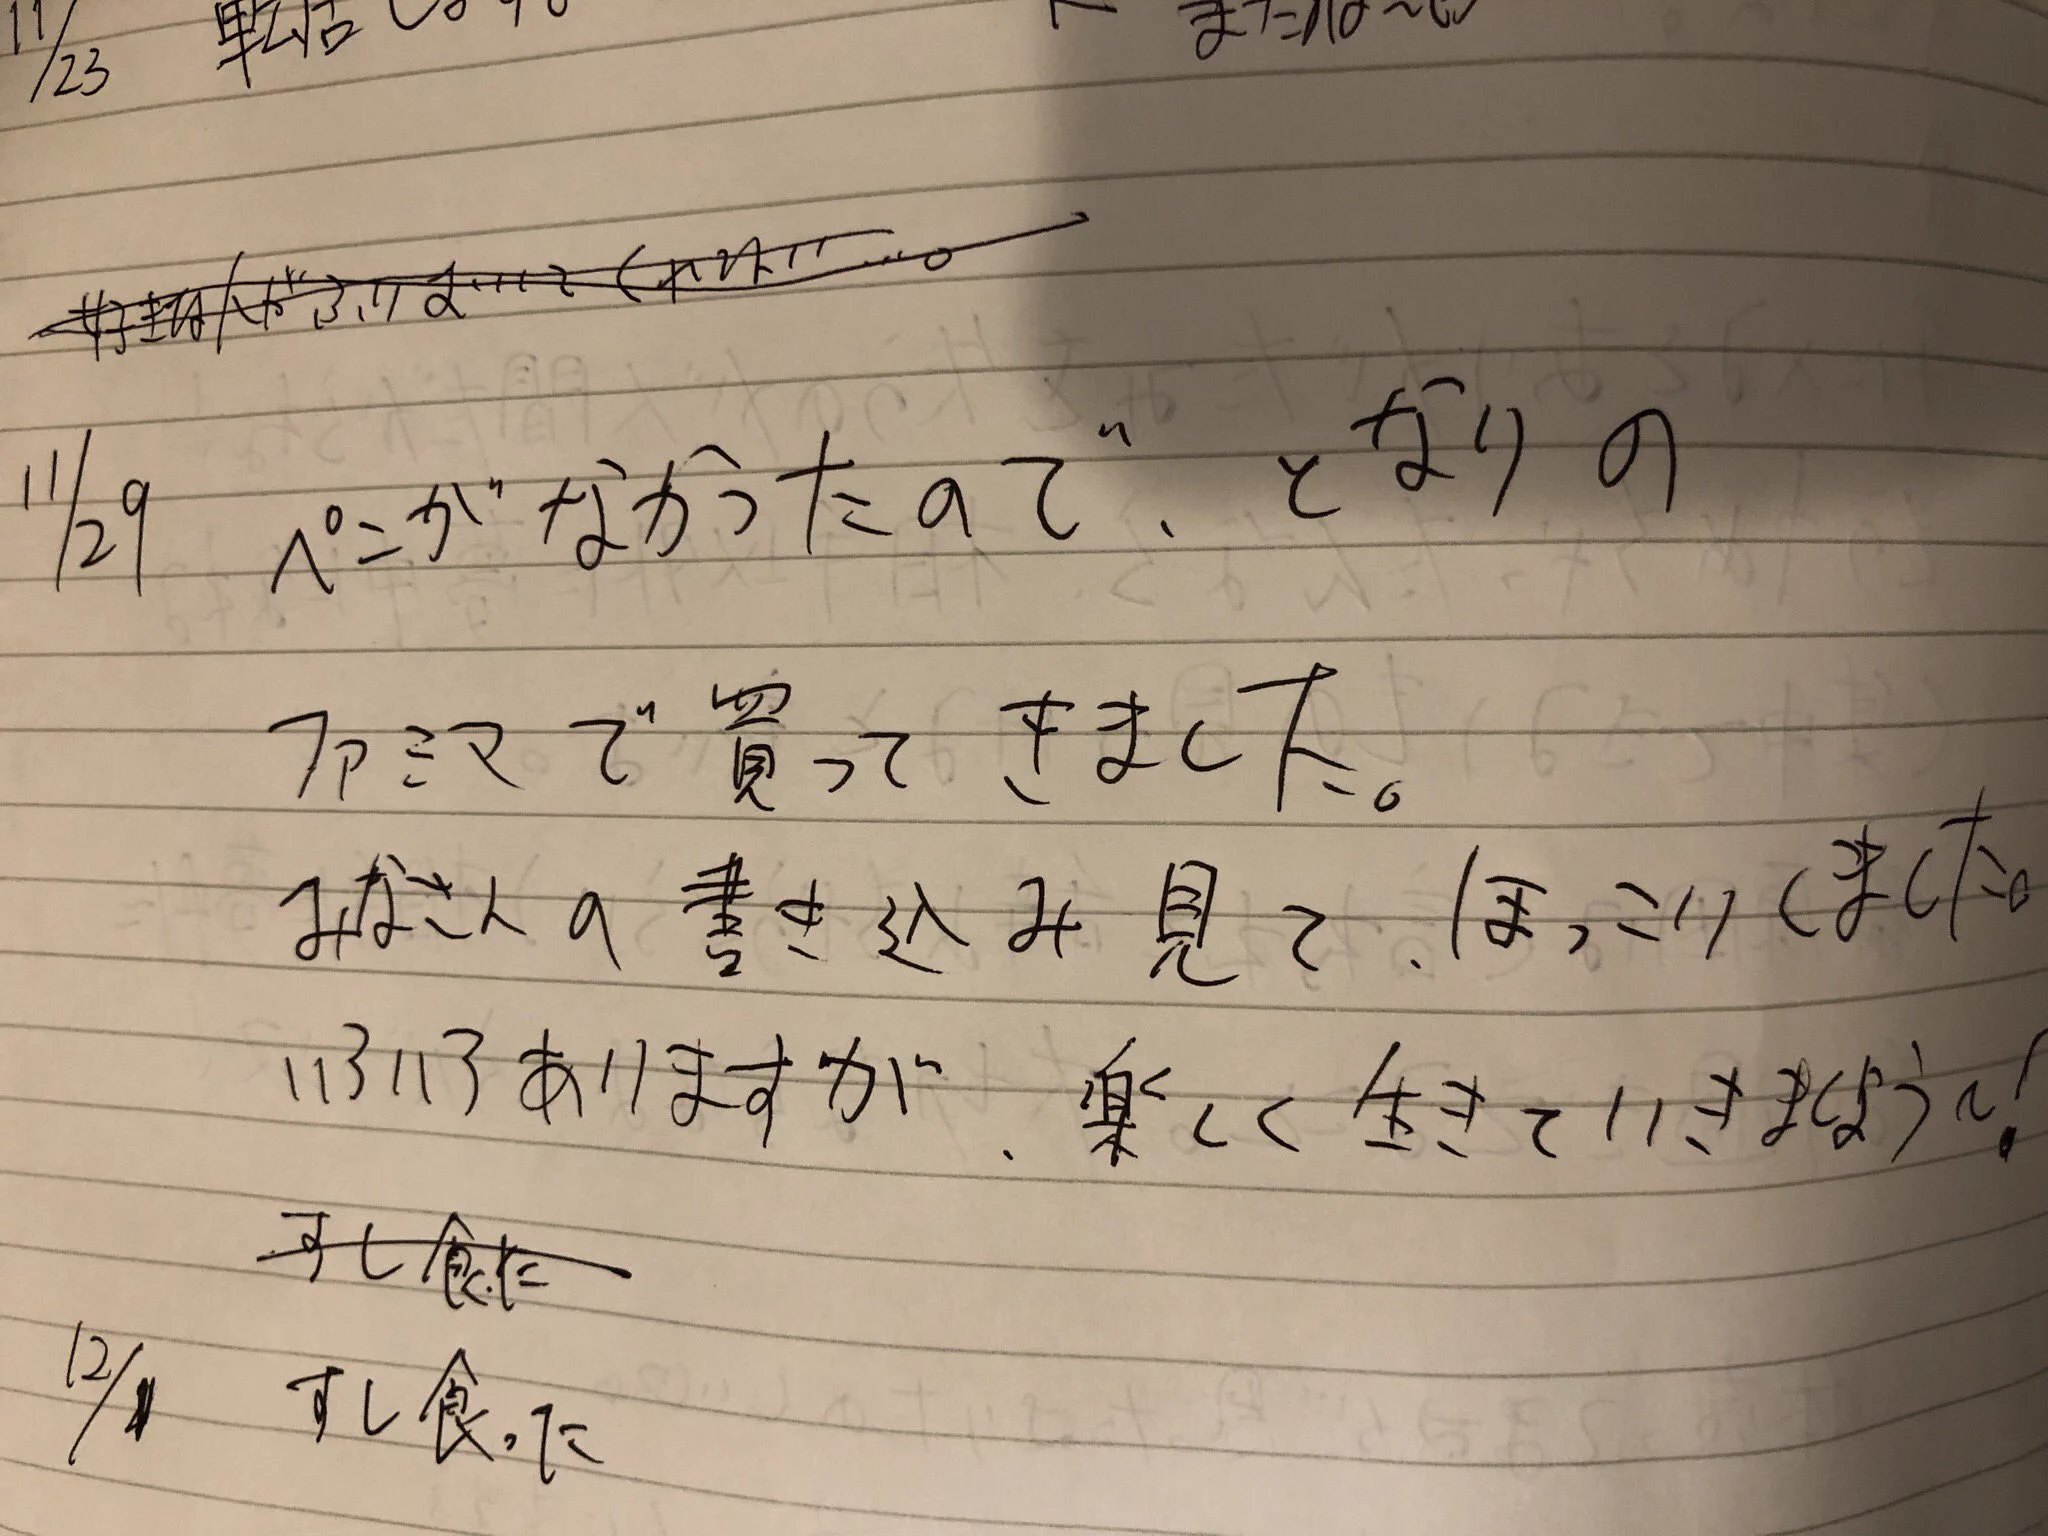 11/23
好きな人がふりむいてくれない…。
11/29 ペンがなかったので、となりの
ファミマで買ってきました。
みなさんの書き込み見て、ほっこりしました。
いろいろありますが、楽しく生きていきましょう〜!
すし食った
12/1 すし食った